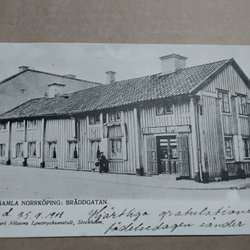 GAMLA NORRKÖPING: BRÅDDGATAN.
Nilssons Ljustrycksanstalt, Stockholm.
d. 25.9.1918 Hjärtliga gratulationer
födelsedagen sänder